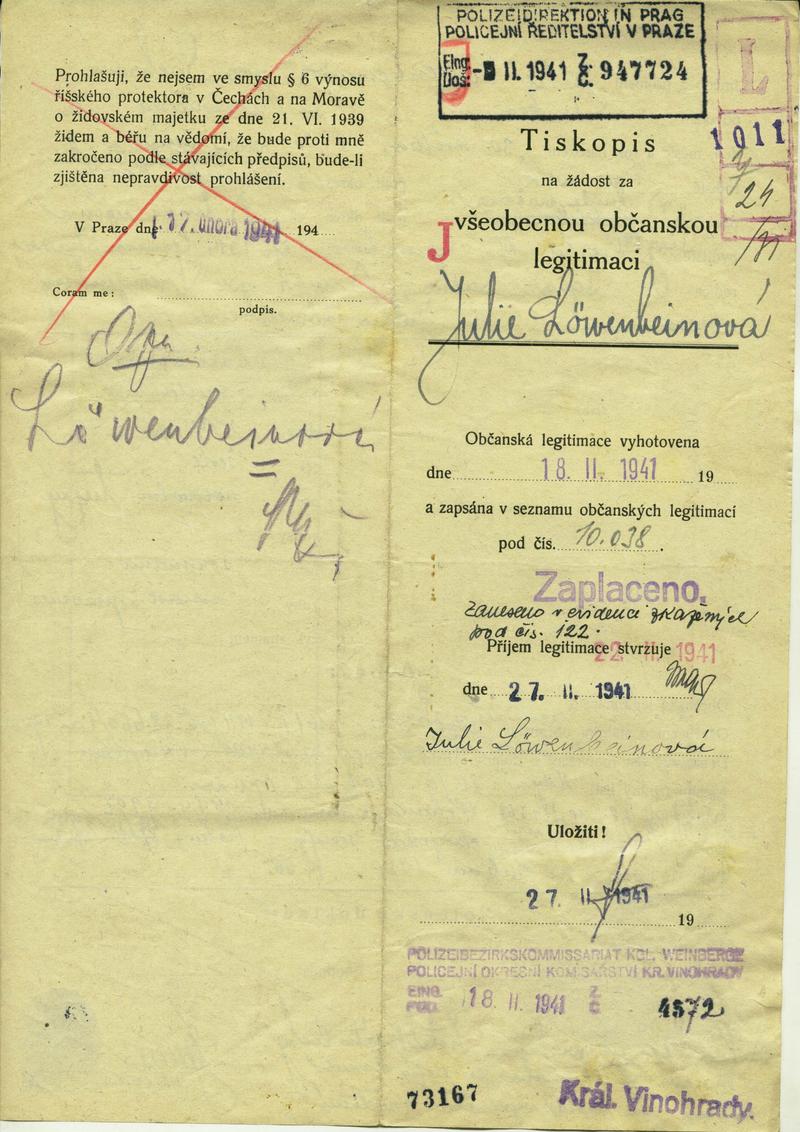 Prohlašuji, že nejsem ve smyslu § 6 výnosu
říšského protektora v Čechách a na Moravě
o židovském majetku ze dne 21. VI. 1939
židem a béřu na vědomí, že bude proti mně
zakročeno podle stávajících předpisů, bude-li
zjištěna nepravdivost prohlášení.
V Praze dne 17. února 1941 194
Coram me:
podpis.
Löwenbeinová
POLIZEIDIREKTION IN PRAG
POLICEJNÍ ŘEDITELSTVÍ V PRAZE
Eing. Doš. II. 1941 Z. Č. 947724
L
1911
24
Tiskopis
na žádost za
J všeobecnou občanskou
legitimaci
Julie Löwenbeinová
Občanská legitimace vyhotovena
dne 18. II. 1941 19
a zapsána v seznamu občanských legitimací
pod čís. 10.038.
Zaplaceno.
Zaneseno v evidenci
pod čís. 122.
Příjem legitimace stvrzuje 22. II. 1941
dne 27. II. 1941
Julie Löwenbeinová
Uložiti!
27. II. 1941
19
POLIZEIBEZIRKSKOMMISSARIAT KGL. WEINBERGE
POLICEJNÍ OKRESNÍ KOMISAŘSTVÍ KR. VINOHRADY
EING. POD. 18. II. 1941 Z. Č. 4572
73167 Král. Vinohrady.